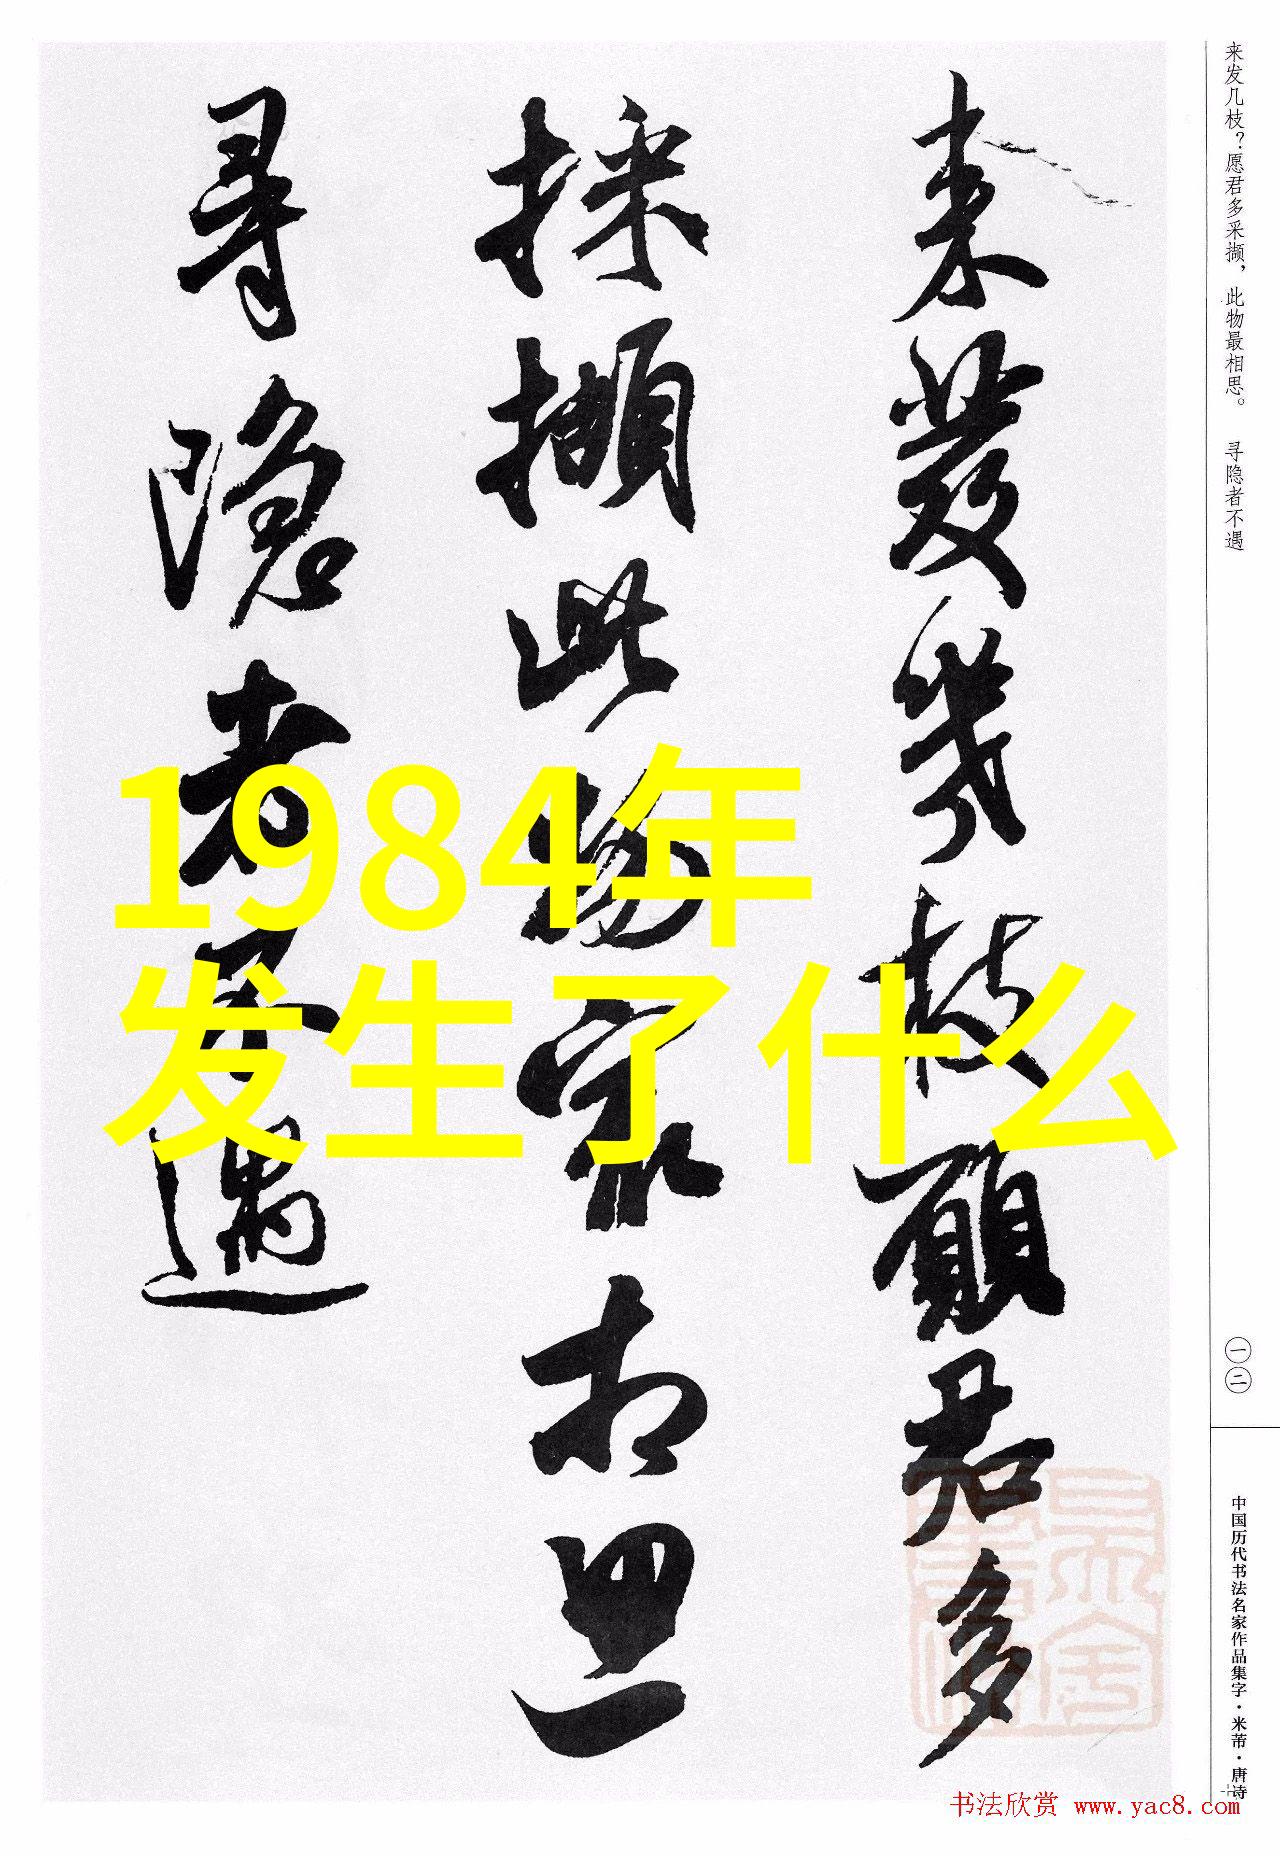 来发几枝？愿君多采撷，此物最相思。 寻隐者不遇
一二
中国历代书法名家作品集字·米芾·唐诗
来發幾枝願君多
採擷此物最相思
尋隱者不遇
1984年
发生了什么
书法欣赏 www.yac8.com